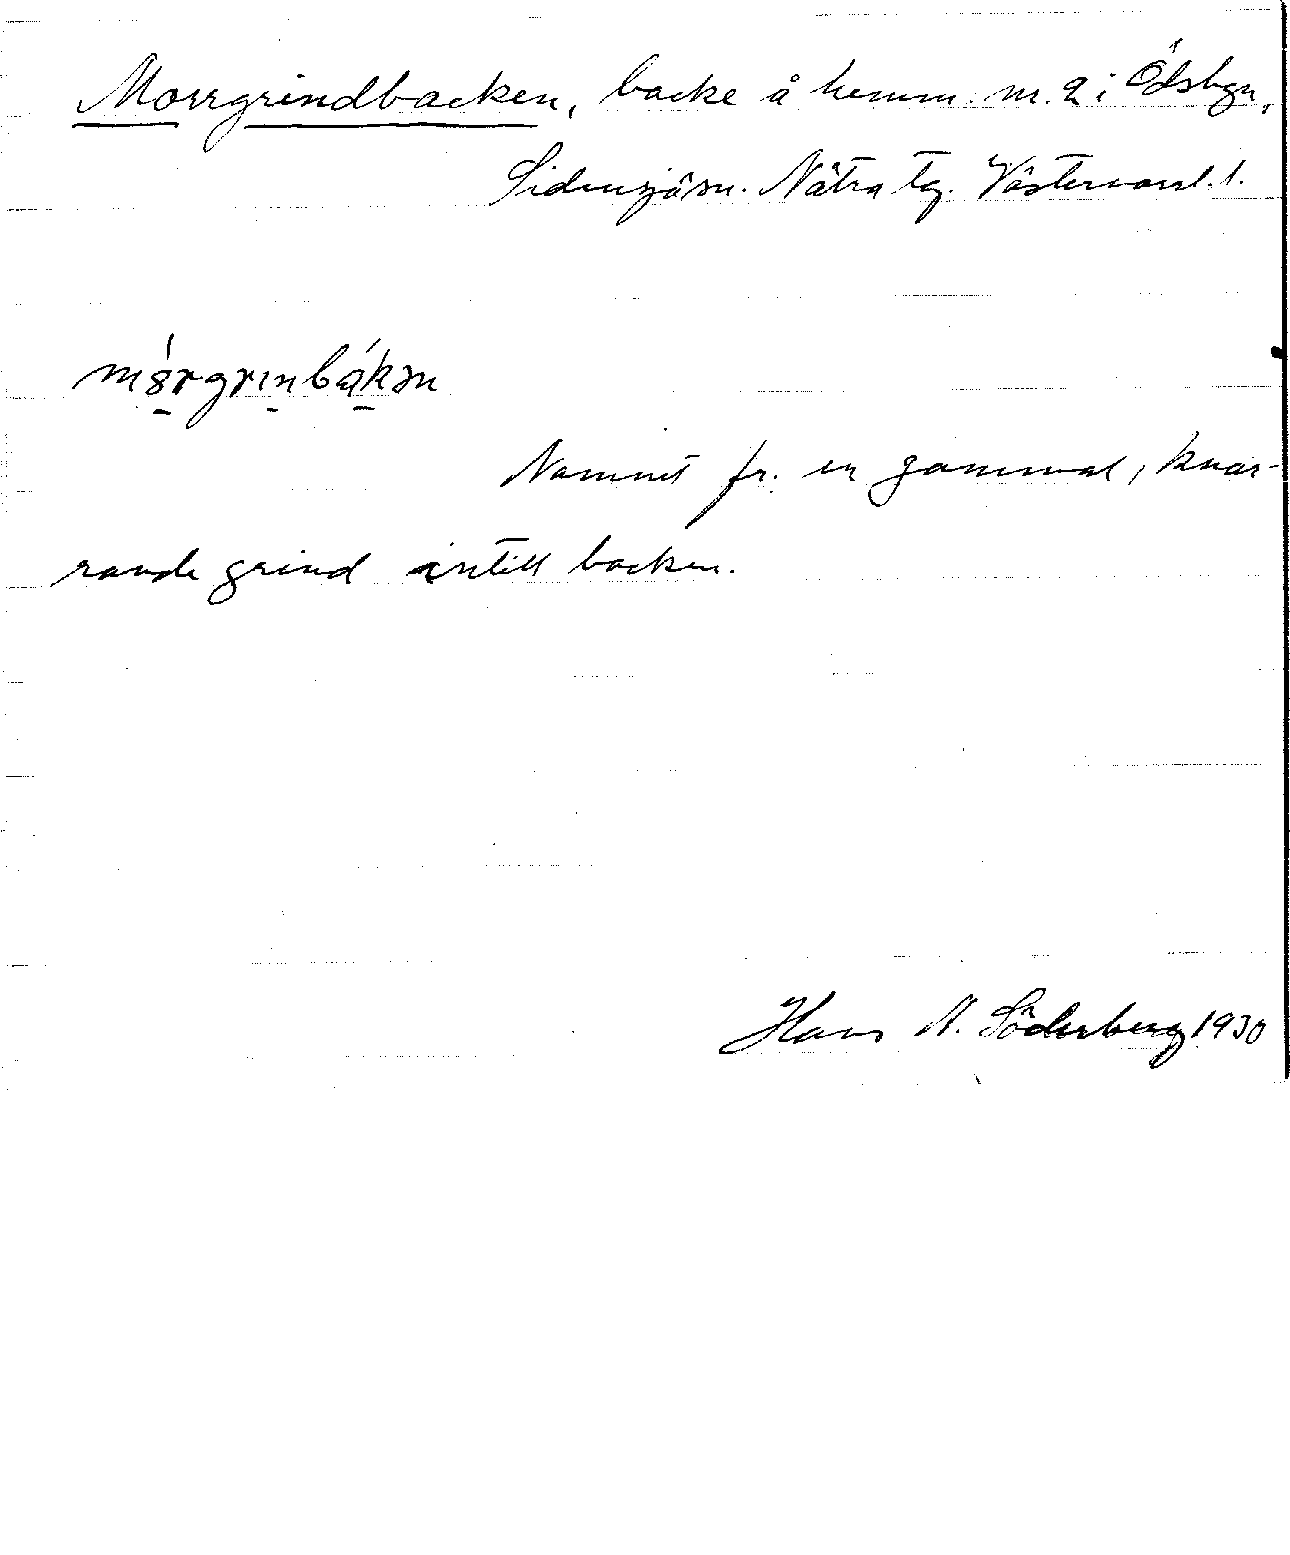 Morrgrindbacken, backe å hemm. nr. 2 i Ödsbyn,
Sidensjö sn. Nätra tg. Västernorrl. l.
mórgrɪnbákən
Namnet fr. en gammal, kvar-
rande grind intill backen.
Hans N. Söderberg 1930